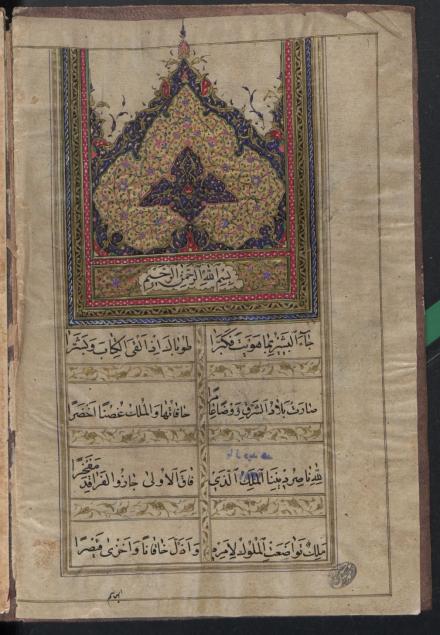 بسم الله الرحمن الرحيم
جاء البشير بما هويت فكبرا طوبى له اذ القى الكتاب وبشرا
صارت بلاد الشرق روضا حافاتها والملك غصنا اخضرا
لله ناصر ديننا الملك الذي فاق الاولى جازوا الفراقد مفخرا
ملك تواضعت الملوك لامره واذل خاقانا واخزى قيصرا